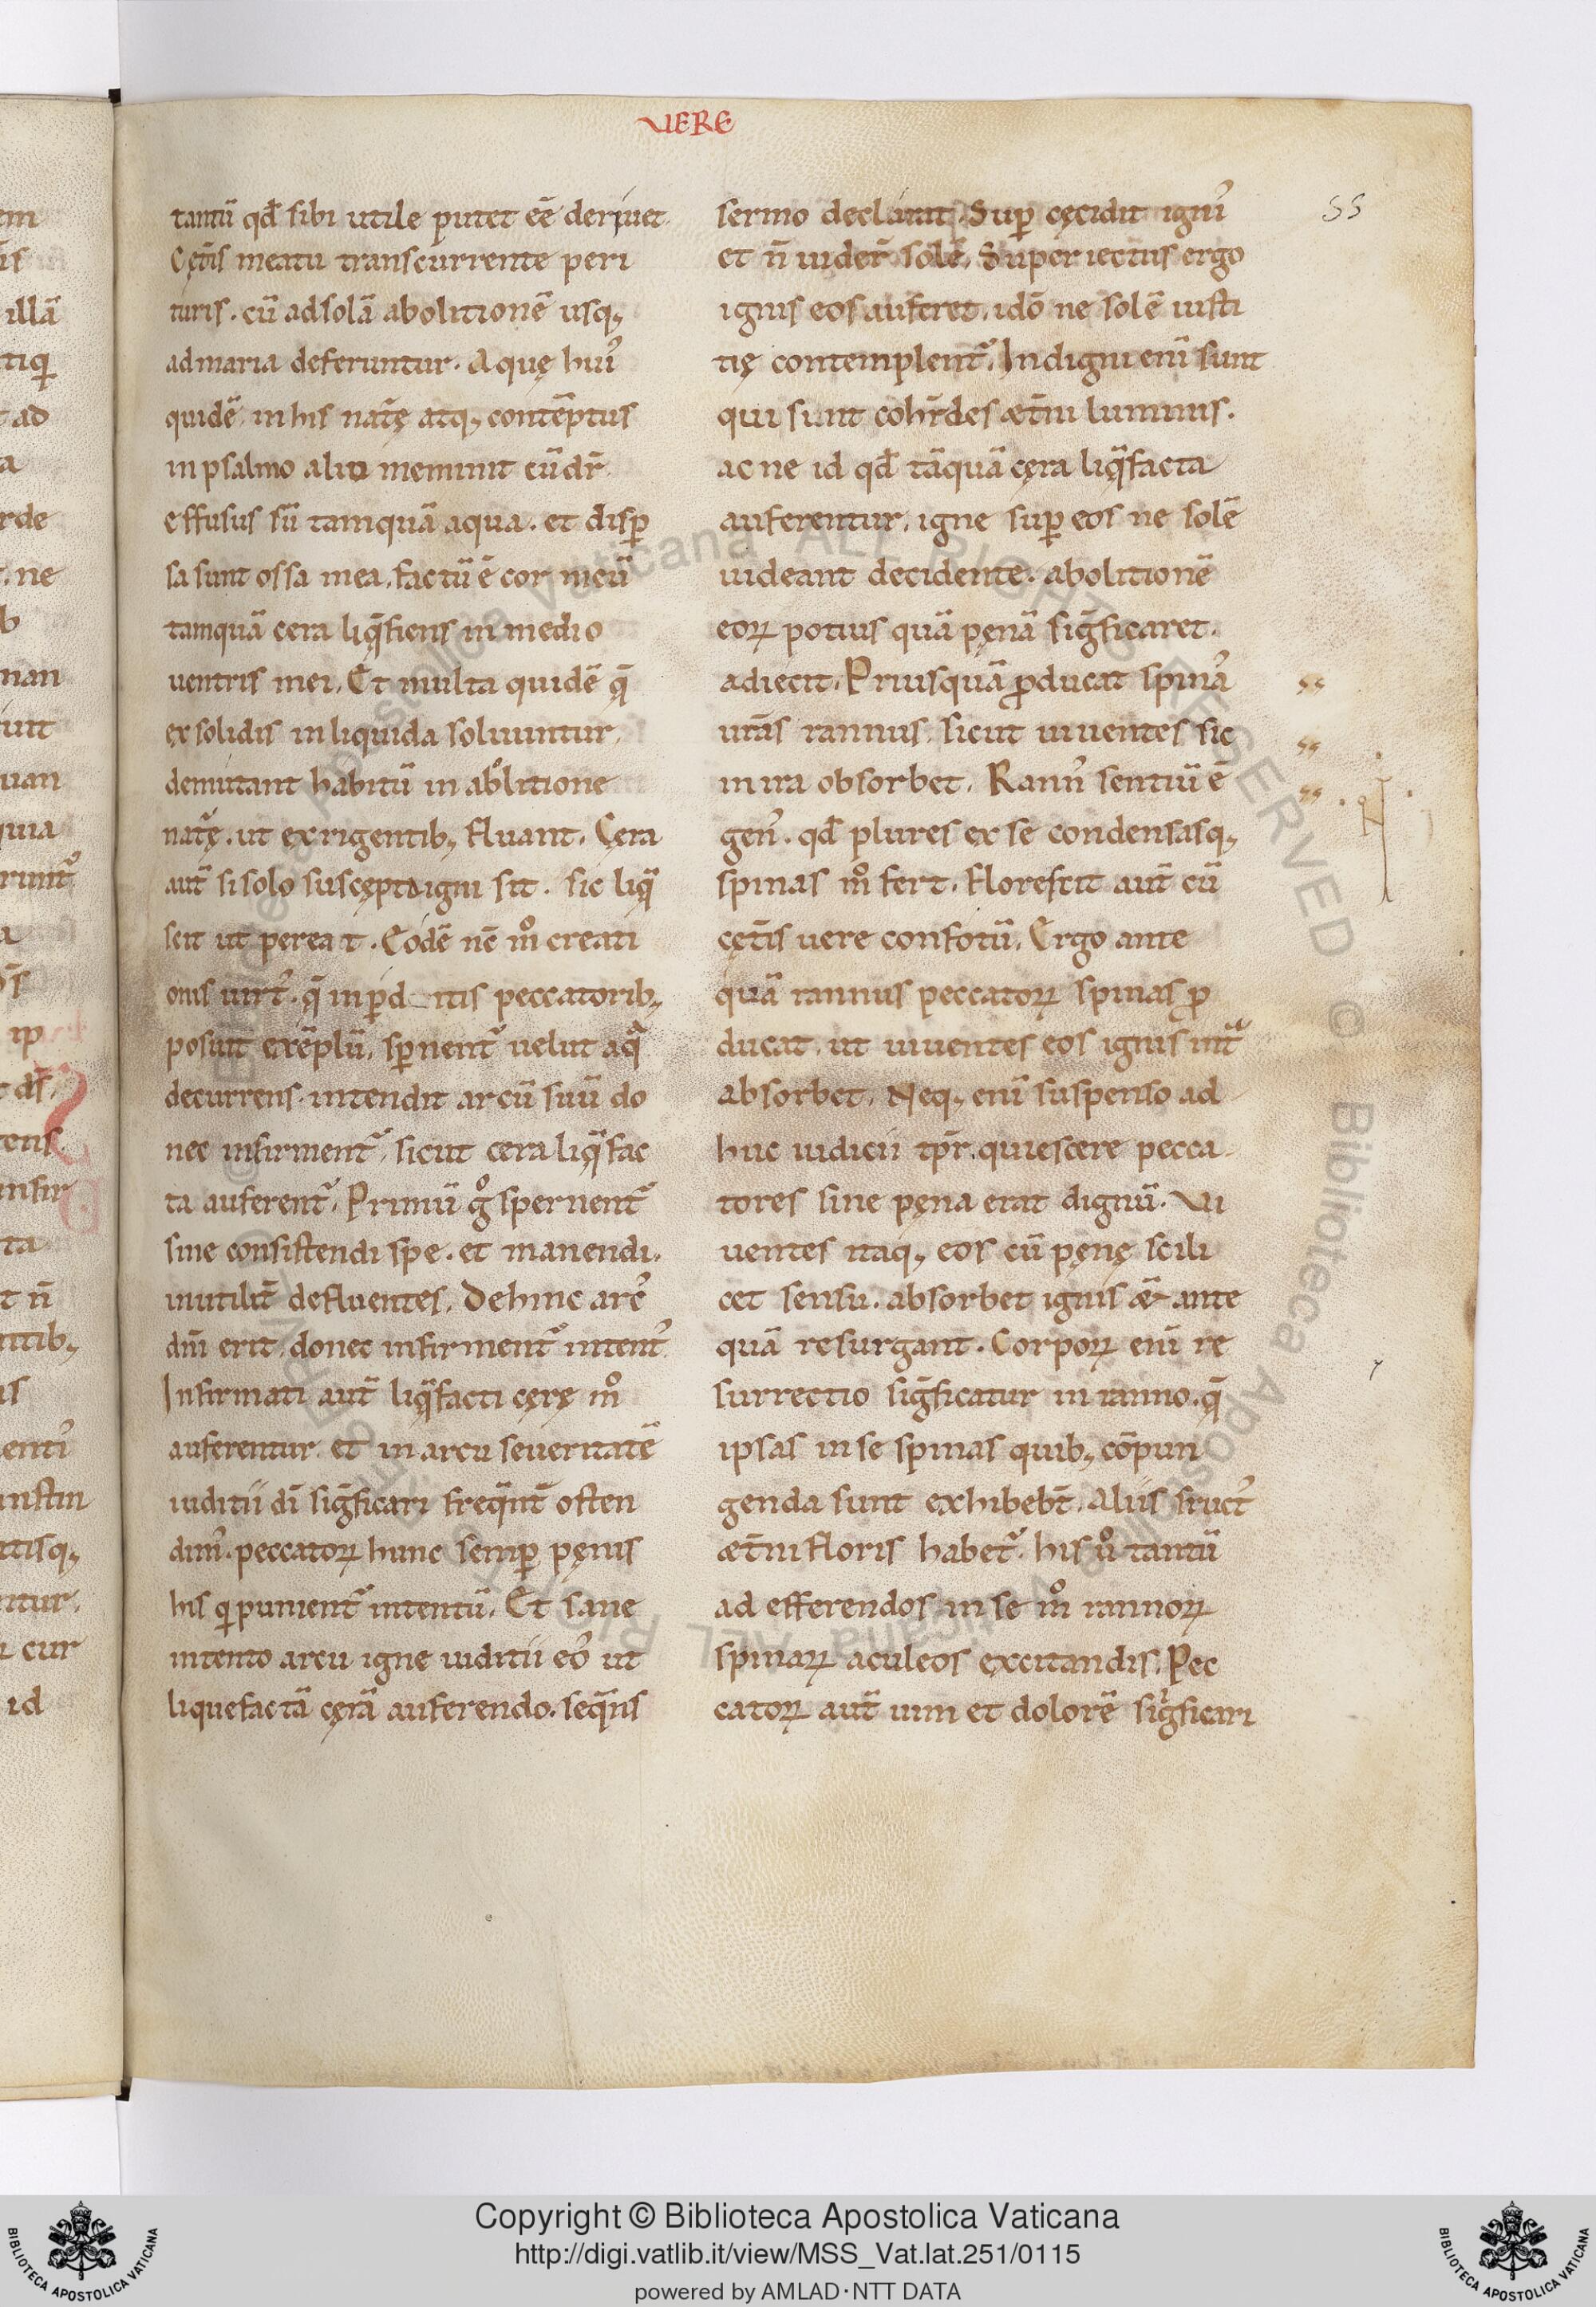 VERE
55
tantū qđ sibi utile putet eē deriuet.
Cęt̄is meatu transcurrente peri
turis. cū ad solā abolitionē usq;
ad maria deferuntur. Aquę hui᾿
quidē in his nat̄ę atq; contēptus
in psalmo alio meminit cū dr̄
effusus sū tamquā aqua. et disp̄
sa sunt ossa mea. factū ē cor meū
tamquā cera liq̄fiens in medio
uentris mei. Et multa quidē q̄
ex solidis in liquida soluuntur.
demutant habitū in abolitione
nat̄ę. ut ex rigentib; fluant. Cęra
aut̄ si solo suscępta igni sit. sic liq̄
scit ut pereat. Eodē nē m̊ creati
onis urt᾿. q̄ in p̄d itis peccatorib;
posuit exēplū. sp̄nent᷑ uelut aq̄
decurrens. intendit arcū suū do
nec infirment᷑. sicut cera liq̄fac
ta auferent᷑. Primū g̊ spernent᷑
sine consistendi spe. et manendi.
inutilit̄ defluentes. Dehinc arc᾿
dn̄i erit. donec infirment᷑ intent᾿.
Infirmati aut̄ liq̄facti cęrę m̊
auferentur. et in arcu seueritatē
iuditii dī siḡficari freq̄nt̄ osten
dim᾿. peccatoꝝ hunc semp̄ pęnis
his q̄ punient᷑ intentū. Et sane
intento arcu igne iuditii eo᾿ ut
liquefactā cęrā auferendo. seq̄ns
sermo declarat. Sup̄ cęcidit igni᾿
et n̄ uider̄ solē. Super iectus ergo
ignis eos aufert. idō ne solē iusti
tię contemplent᷑. Indigni enī sunt
qui sunt cohr̄des æt̄ni luminis.
ac ne id qđ tāquā cęra liq̄facta
auferentur. igne sup̄ eos ne solē
uideant decidente. abolitionē
eoꝝ potius quā pęnā siḡficaret.
adiecit. Priusquā ꝓducat spina᾿
urās rannus. sicut uiuentes sic
in ira obsorbet. Rann᾿ sentiū ē
gen᾿. qđ plures ex se condensasq;
spinas m̊ fert. florescit aut̄ cū
cęt̄is uere confotū. Ergo ante
quā rannus peccatoꝝ spinas ꝓ
ducat. ut uiuentes eos ignis int̄
absorbet. Neq; enī suspenso ad
huc iudicii tpr̄. quiescere pecca
tores sine pęna erat dignū. Vi
uentes itaq; eos cū pęnę scili
cet sensu. absorbet ignis æt̄ ante
quā resurgant. Corpoꝝ enī re
surrectio siḡficatur in ranno. q̄
ipsas in se spinas quib; cōpun
genda sunt exhibeb̄t. Aliis fruct᾿
æt̄ni floris habet᷑. his ů tantū
ad efferendos in se m̊ rannoꝝ
spinaꝝ aculeos excitandis. Pec
catoꝝ aut̄ uim et dolorē siḡficari
Copyright © Biblioteca Apostolica Vaticana
http://digi.vatlib.it/view/MSS_Vat.lat.251/0115
powered by AMLAD·NTT DATA